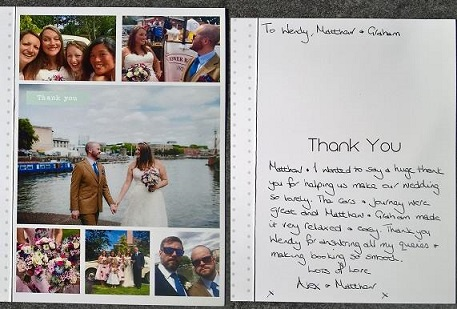 Thank you
To Wendy, Matthew + Graham
Thank You
Matthew + I wanted to say a huge thank
you for helping us make our wedding
so lovely. The cars + journey were
great and Matthew + Graham made
it very relaxed + easy. Thank you
Wendy for answering all my queries +
making booking so smooth.
Lots of Love
Alex + Matthew
x x